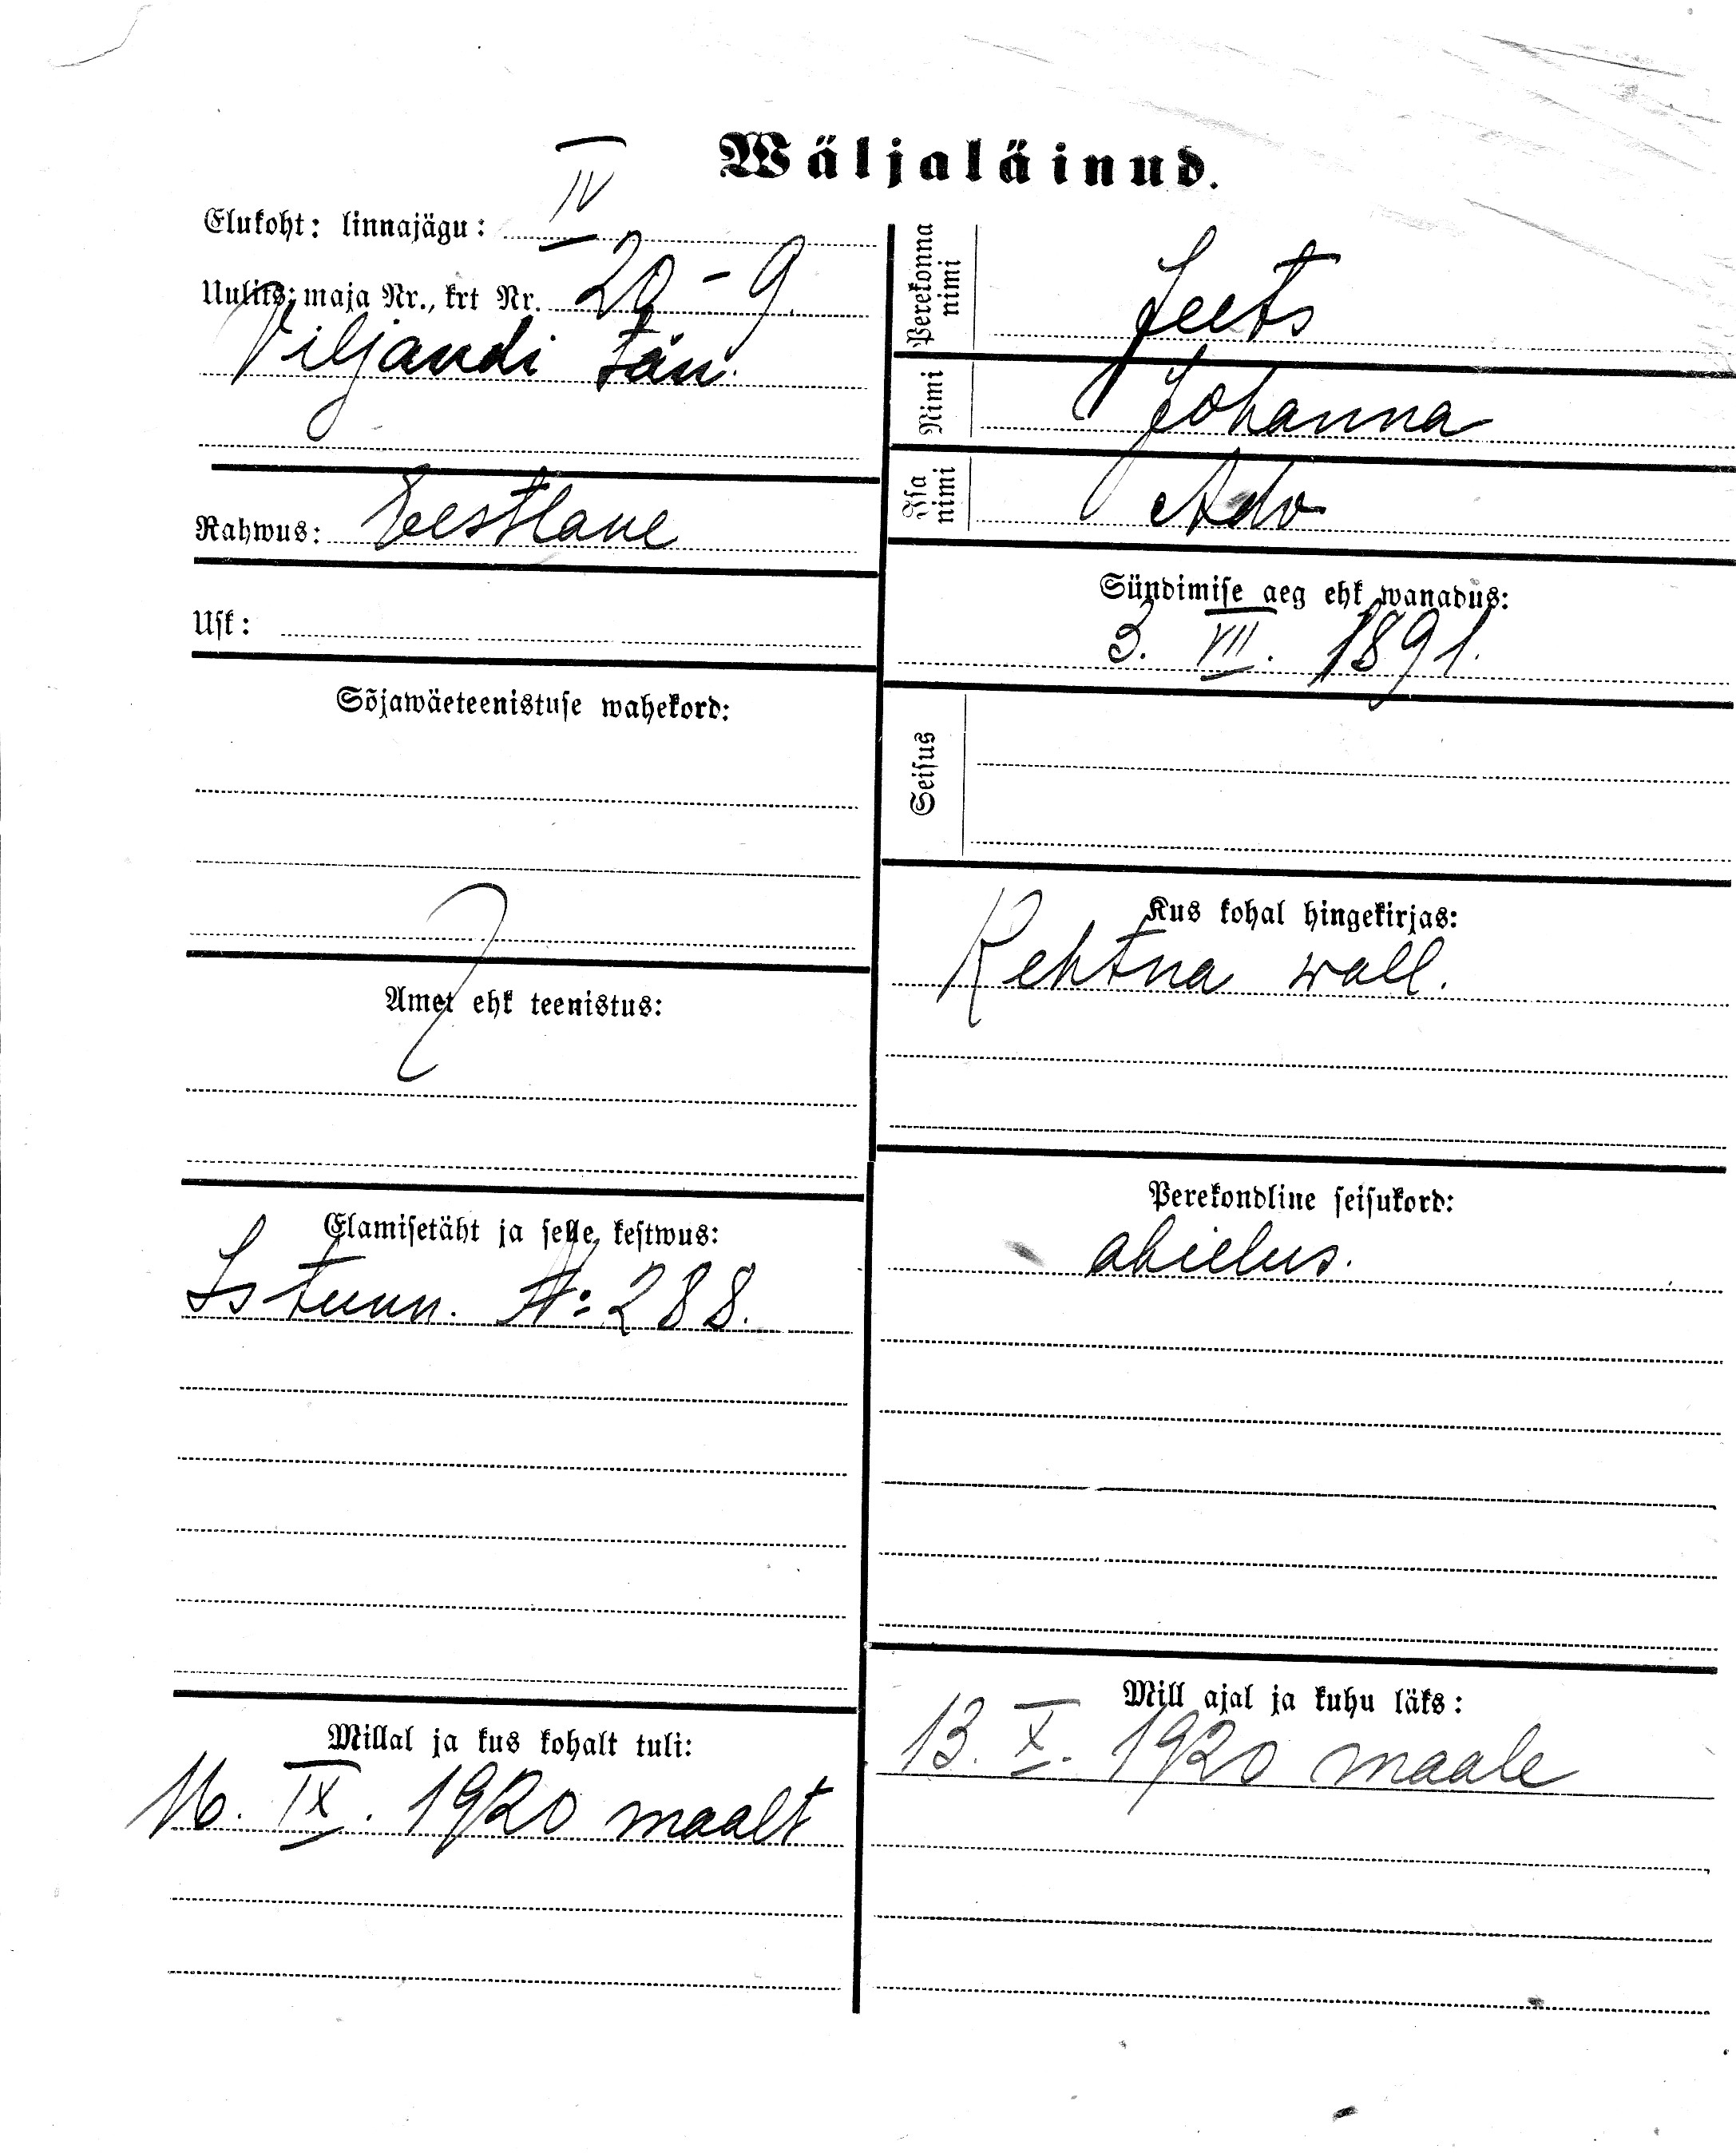 Wäljaläinud.
Elukoht: linnajägu: IV
Uulits: maja Nr., krt Nr. 20 - 9.
Viljandi tän.
Rahwus: Eestlane
Usk:
Sõjawäeteenistuse wahekord:
Amet ehk teenistus:
Elamisetäht ja selle kestwus:
Istunn. №: 288.
Millal ja kus kohalt tuli:
16. IX. 1920 maalt
Perekonna nimi
Jeets
Nimi
Johanna
Isa nimi
Ado
Sündimise aeg ehk wanadus:
3. VII. 1891.
Seisus
Kus kohal hingekirjas:
Rehtna wall.
Perekondline seisukord:
abielus.
Mill ajal ja kuhu läks:
13. X. 1920 maale